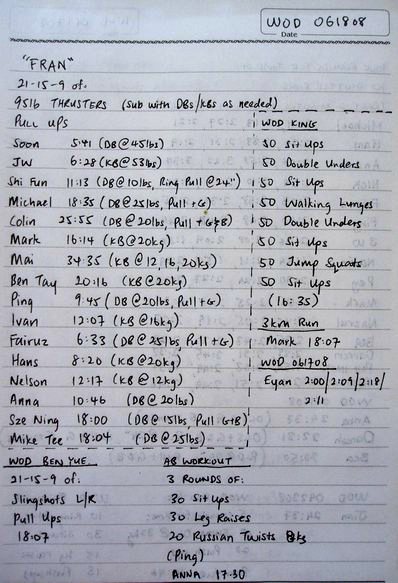 WOD 061808
Date
"FRAN"
21-15-9 of:
95lb THRUSTERS (sub with DBs/KBs as needed)
PULL UPS
Soon 5:41 (DB@45lbs)
JW 6:28 (KB@53lbs)
Shi Fun 11:13 (DB@10lbs, Ring Pull @24")
Michael 18:35 (DB@25lbs, Pull +G)
Colin 25:55 (DB@20lbs, Pull +G+B)
Mark 16:14 (KB@20kg)
Mai 34:35 (KB@12,16,20kg)
Ben Tay 20:16 (KB@20kg)
Ping 9:45 (DB@20lbs, Pull+G)
Ivan 12:07 (KB@16kg)
Fairuz 6:33 (DB@25lbs, Pull+G)
Hans 8:20 (KB@20kg)
Nelson 12:17 (KB@12kg)
Anna 10:46 (DB@20lbs)
Sze Ning 18:00 (DB@15lbs, Pull G+B)
Mike Tee 18:04 (DB@25lbs)
WOD KING
50 Sit Ups
50 Double Unders
50 Sit Ups
50 Walking Lunges
50 Double Unders
50 Sit Ups
50 Jump Squats
50 Sit Ups
(16:35)
3km Run
Mark 18:07
WOD 061708
Eyan 2:00/2:09/2:18/
2:11
WOD BEN YUE
21-15-9 of:
Slingshots L/R
Pull Ups
18:07
AB WORKOUT
3 ROUNDS OF:
30 Sit Ups
30 Leg Raises
20 Russian Twists
(Ping)
ANNA 17:30